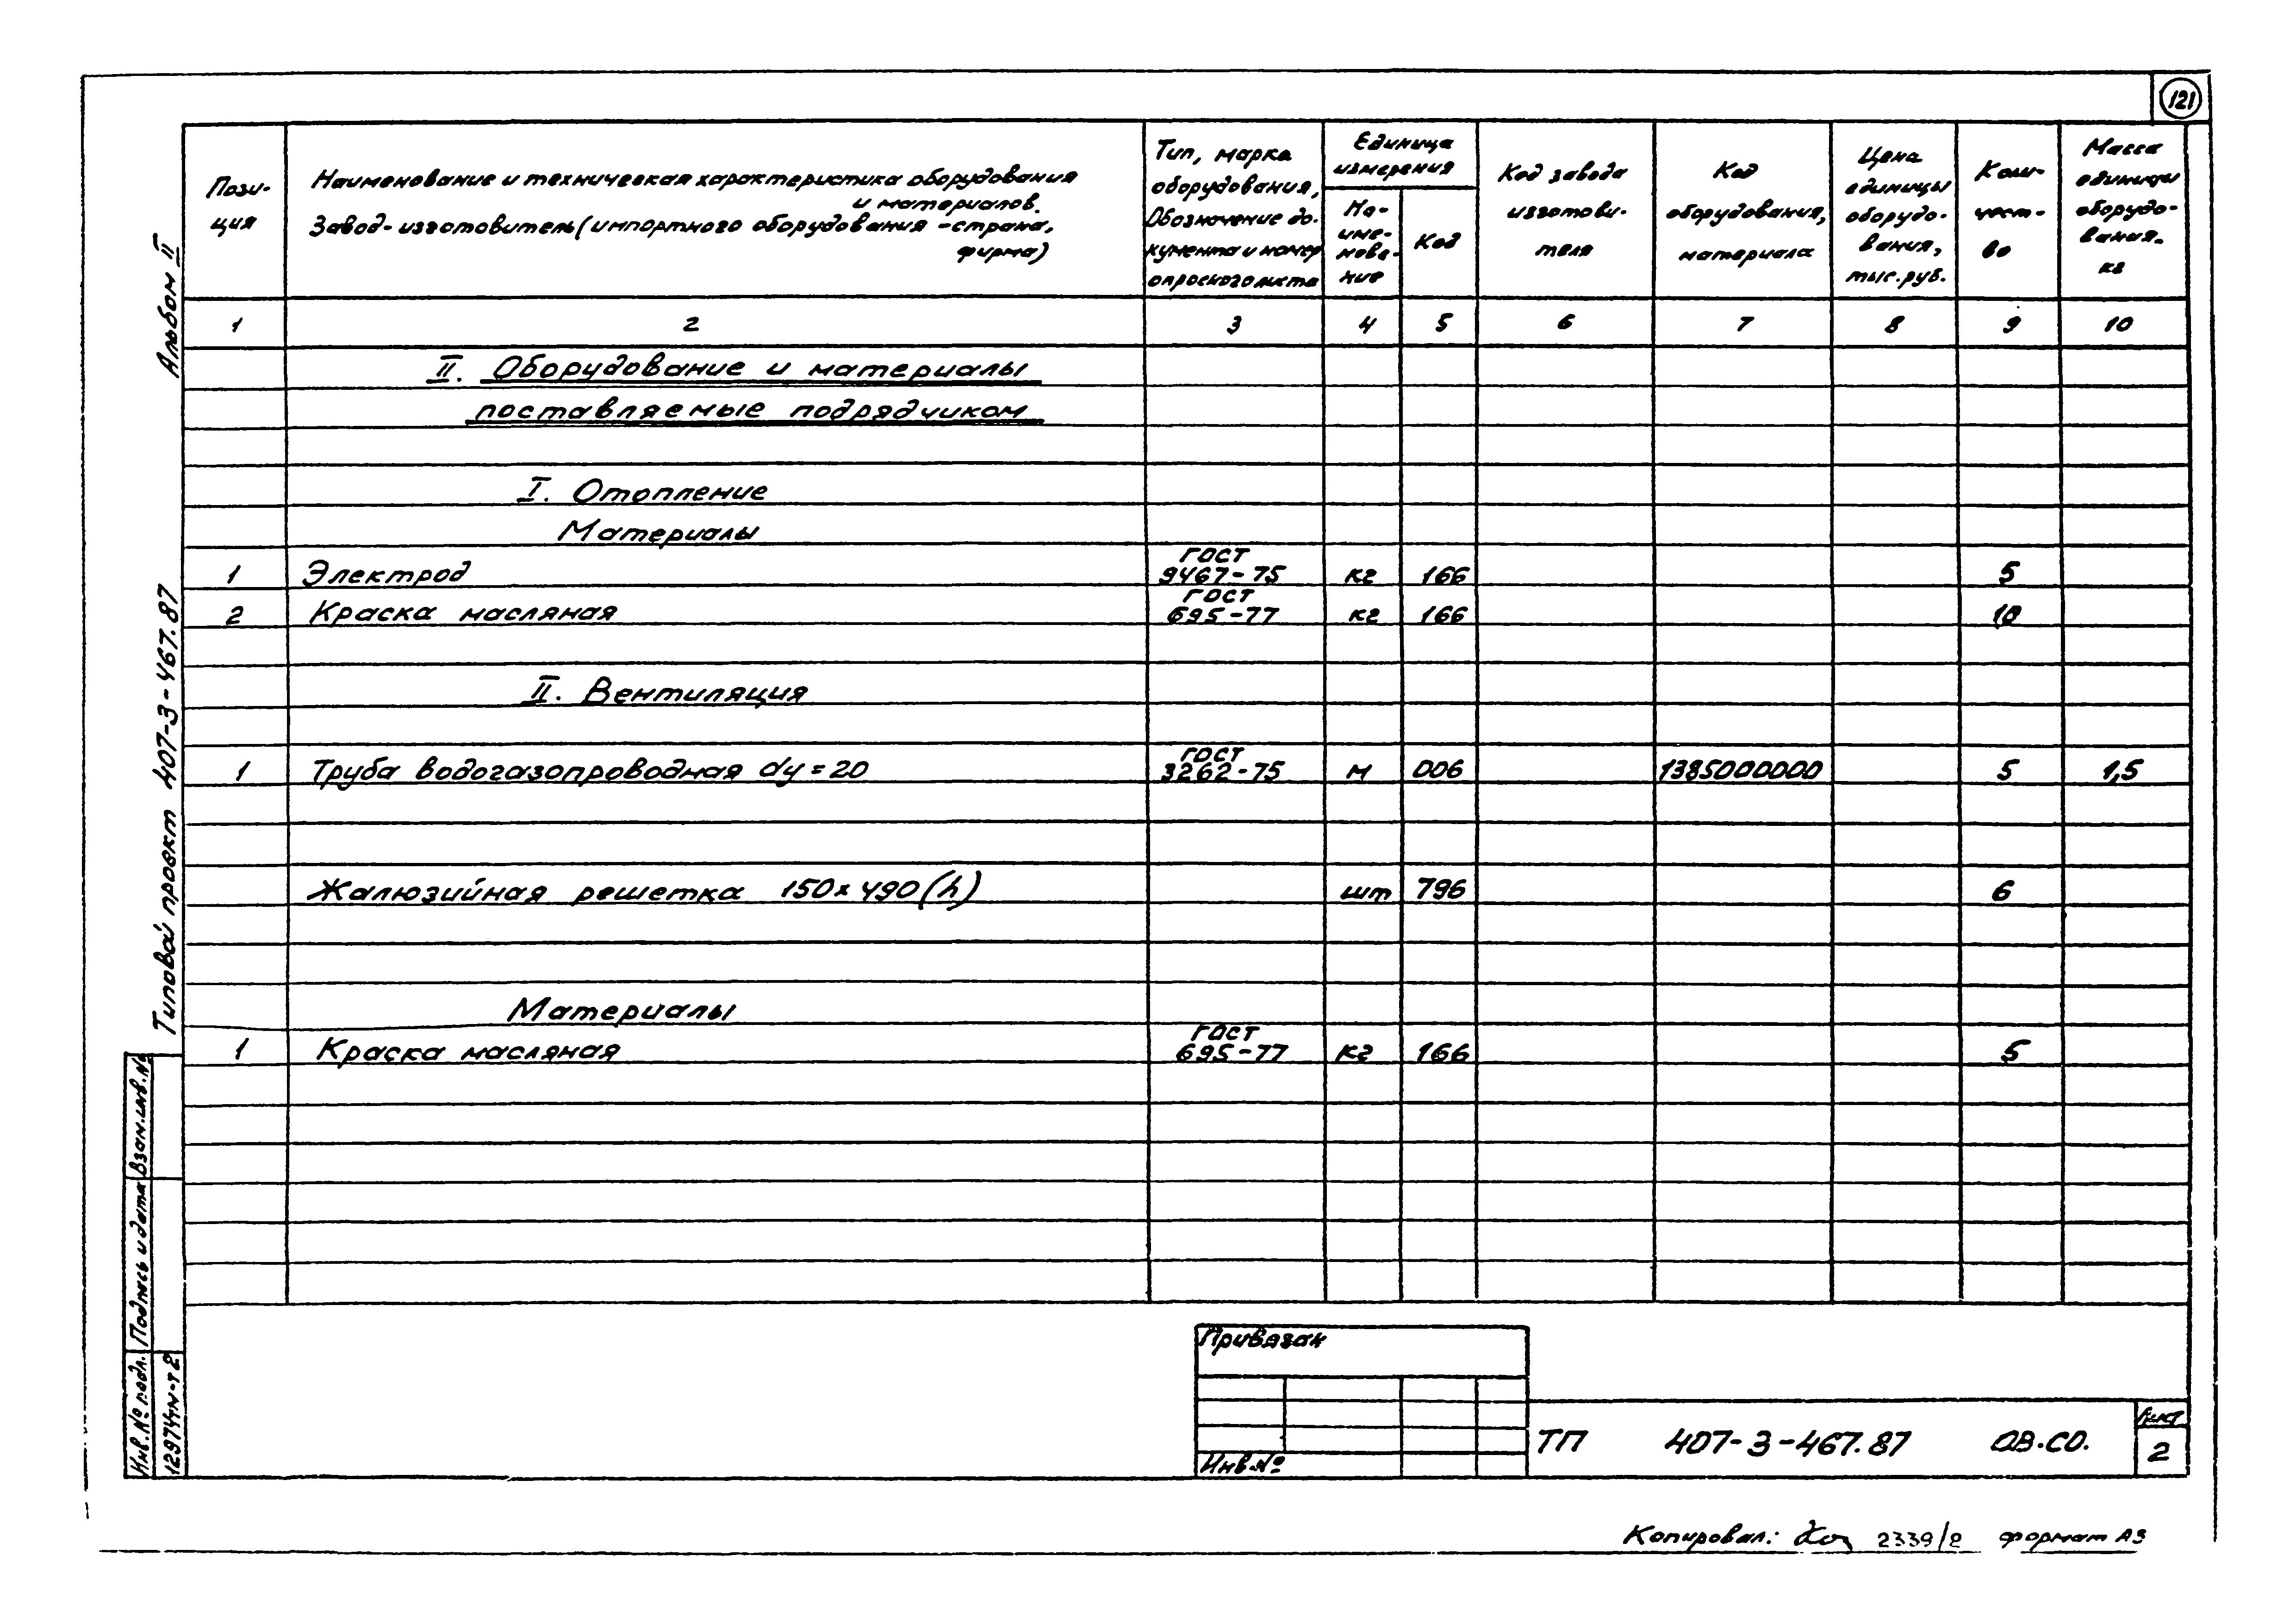 121
Пози-
ция
Наименование и техническая характеристика оборудования
и материалов.
Завод-изготовитель (импортного оборудования - страна,
фирма)
Тип, марка
оборудования,
Обозначение до-
кумента и номер
опросного листа
Единица
измерения
На-
име-
нова-
ние
Код
Код завода
изготови-
теля
Код
оборудования,
материала
Цена
единицы
оборудо-
вания,
тыс. руб.
Коли-
чест-
во
Масса
единицы
оборудо-
вания.
кг
1 2 3 4 5 6 7 8 9 10
II. Оборудование и материалы
поставляемые подрядчиком
I. Отопление
Материалы
ГОСТ
1 Электрод 9467-75 кг 166 5
ГОСТ
2 Краска масляная 695-77 кг 166 10
II. Вентиляция
ГОСТ
1 Труба водогазопроводная dy=20 3262-75 м 006 1385000000 5 1,5
Жалюзийная решетка 150х490(h) шт 796 6
Материалы
ГОСТ
1 Краска масляная 695-77 кг 166 5
Альбом II
Типовой проект 407-3-467.87
Взам.инв.№
Подпись и дата
Инв.№ подл.
12974тм-т2
Привязан
Инв.№
ТП 407-3-467.87 ОВ.СО.
Лист
2
Копировал: 2339/2 формат А3